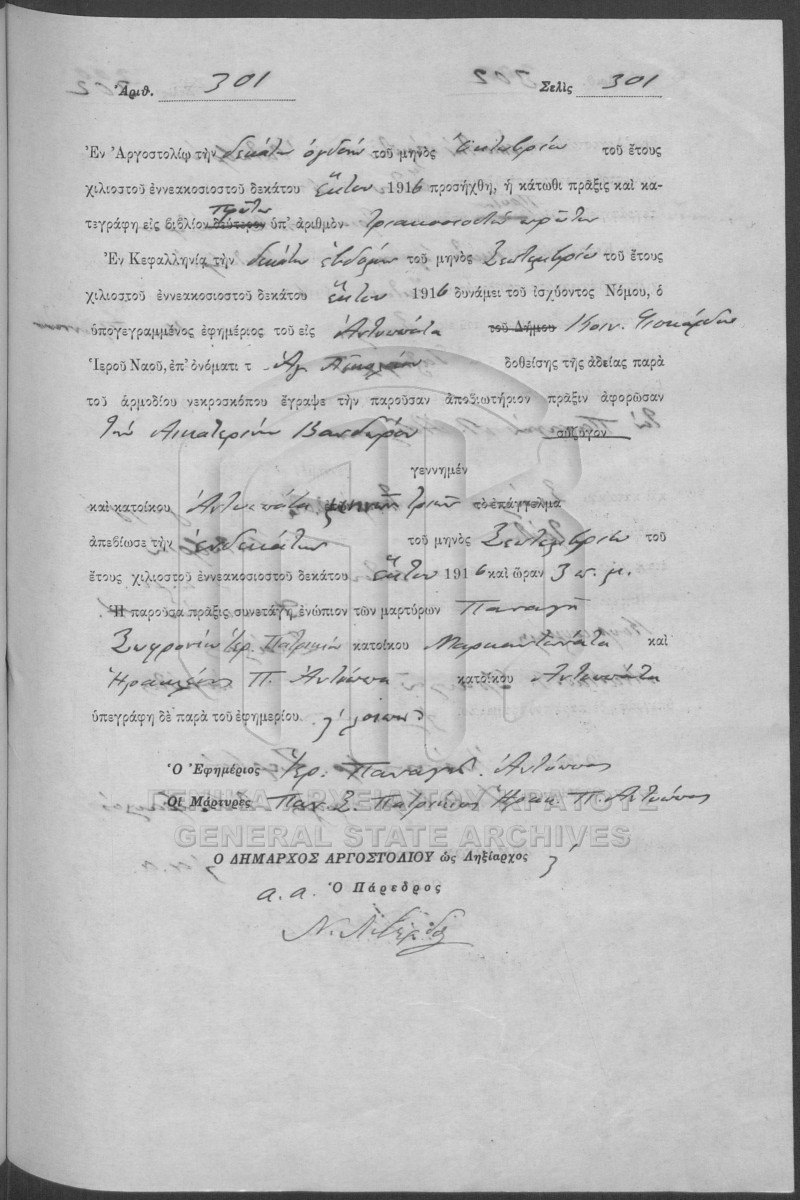 Ἀριθ. 301 Σελὶς 301
Ἐν Ἀργοστολίῳ τὴν δεκάτην ὀγδόην τοῦ μηνὸς Ὀκτωβρίου τοῦ ἔτους
χιλιοστοῦ ἐννεακοσιοστοῦ δεκάτου ἕκτου 1916 προσήχθη, ἡ κάτωθι πρᾶξις καὶ κα-
πρῶτον
τεγράφη εἰς βιβλίον δεύτερον ὑπ' ἀριθμὸν τριακοσιοστὸν πρῶτον
Ἐν Κεφαλληνίᾳ τὴν δεκάτην ἑβδόμην τοῦ μηνὸς Σεπτεμβρίου τοῦ ἔτους
χιλιοστοῦ ἐννεακοσιοστοῦ δεκάτου ἕκτου 1916 δυνάμει τοῦ ἰσχύοντος Νόμου, ὁ
ὑπογεγραμμένος ἐφημέριος τοῦ εἰς Ἀντυπάτα τοῦ Δήμου Κοιν.
Ἱεροῦ Ναοῦ, ἐπ' ὀνόματι τ Ἁγ. δοθείσης τῆς ἀδείας παρὰ
τοῦ ἁρμοδίου νεκροσκόπου ἔγραψε τὴν παροῦσαν ἀποβιωτήριον πρᾶξιν ἀφορῶσαν
τὴν Αἰκατερίνην σύζυγον
γεννημέν
καὶ κατοίκου Ἀντυπάτα μηνῶν τριῶν τὸ ἐπάγγελμα
ἀπεβίωσε τὴν ἑνδεκάτην τοῦ μηνὸς Σεπτεμβρίου τοῦ
ἔτους χιλιοστοῦ ἐννεακοσιοστοῦ δεκάτου ἕκτου 1916 καὶ ὥραν 3 π. μ.
Ἡ παροῦσα πρᾶξις συνετάγη ἐνώπιον τῶν μαρτύρων Παναγῆ
Σωφρονίου Ἱερ. Πατρικίου κατοίκου Μαρκαντωνάτα καὶ
Ἡρακλέους Π. Ἀντύπα κατοίκου Ἀντυπάτα
ὑπεγράφη δὲ παρὰ τοῦ ἐφημερίου.
Ὁ Ἐφημέριος Ἱερ. Παναγῆς Ἀντύπας
Οἱ Μάρτυρες Παν. Σ. Πατρίκιος Ἡρακ. Π. Ἀντύπας
ΓΕΝΙΚΑ ΑΡΧΕΙΑ ΤΟΥ ΚΡΑΤΟΥΣ
GENERAL STATE ARCHIVES
Ὁ ΔΗΜΑΡΧΟΣ ΑΡΓΟΣΤΟΛΙΟΥ ὡς Ληξίαρχος
α.α. Ὁ Πάρεδρος